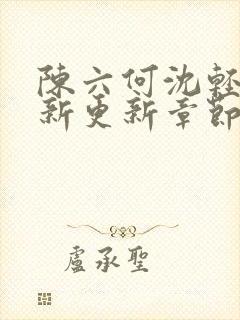 陳六何沈輕
新更新章節
盧承聖